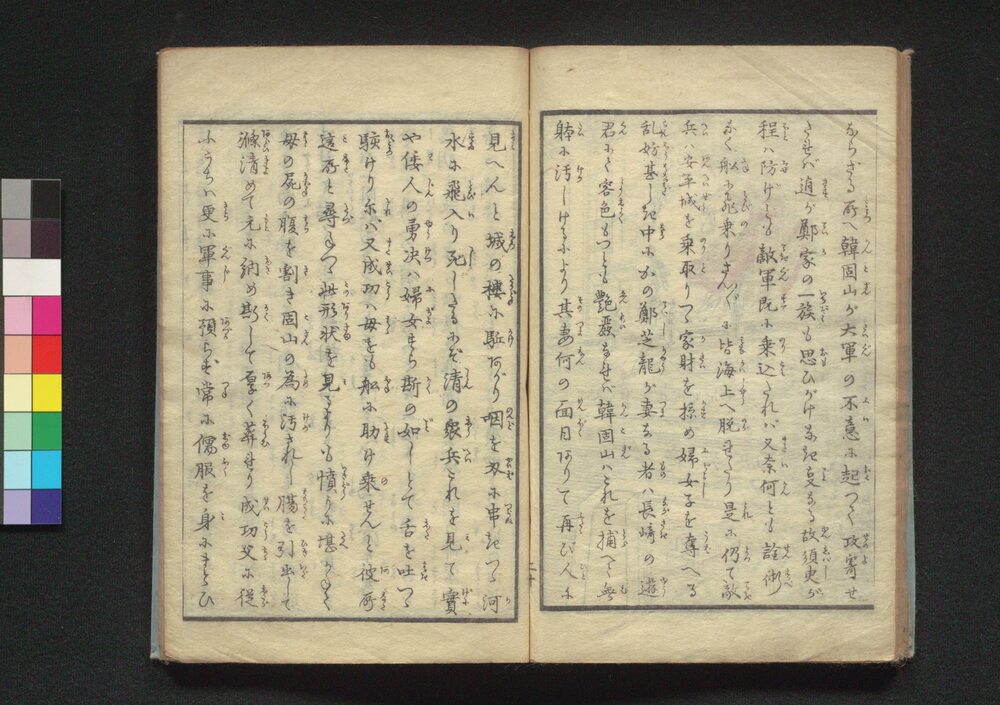 ならざる所へ韓固山が大軍の不意に起つて攻寄せ
たれバ適が鄭家の一族も思ひがけなき変なる故須臾が
程ハ防げども敵軍既に乗込たれバ又奈何とも詮術
なく船に飛乗りさん〴〵に皆海上へ脱せたり是に仍て敵
兵ハ安平城を乗取りつゝ家財を掠め婦女子を奪へる
乱妨甚しき中にかの鄭芝龍が妻なる者ハ長崎の遊
君にて容色もつとも艶麗なれバ韓固山ハこれを捕へて無
躰に汚しけるにより其妻何の面目ありて再び人に
見へんと城の樓に駈あがり咽を刃に串きつゝ河
水に飛入り死したるにぞ清の衆兵これを見て實
や倭人の勇决ハ婦女すら斯の如しとて舌を吐つゝ
駭けりにバ又成功ハ母をも船に助け乗せんと彼所
這所と尋るつゝ此形状を見るよりも憤りに堪かく
母の屍の腹を割き固山の為に汚されし腸を引出して
滌清めて元に納め斯して厚く葬せり成功父に従
ふうちハ更に軍事に預らず常に儒服を身にまとひ
二十